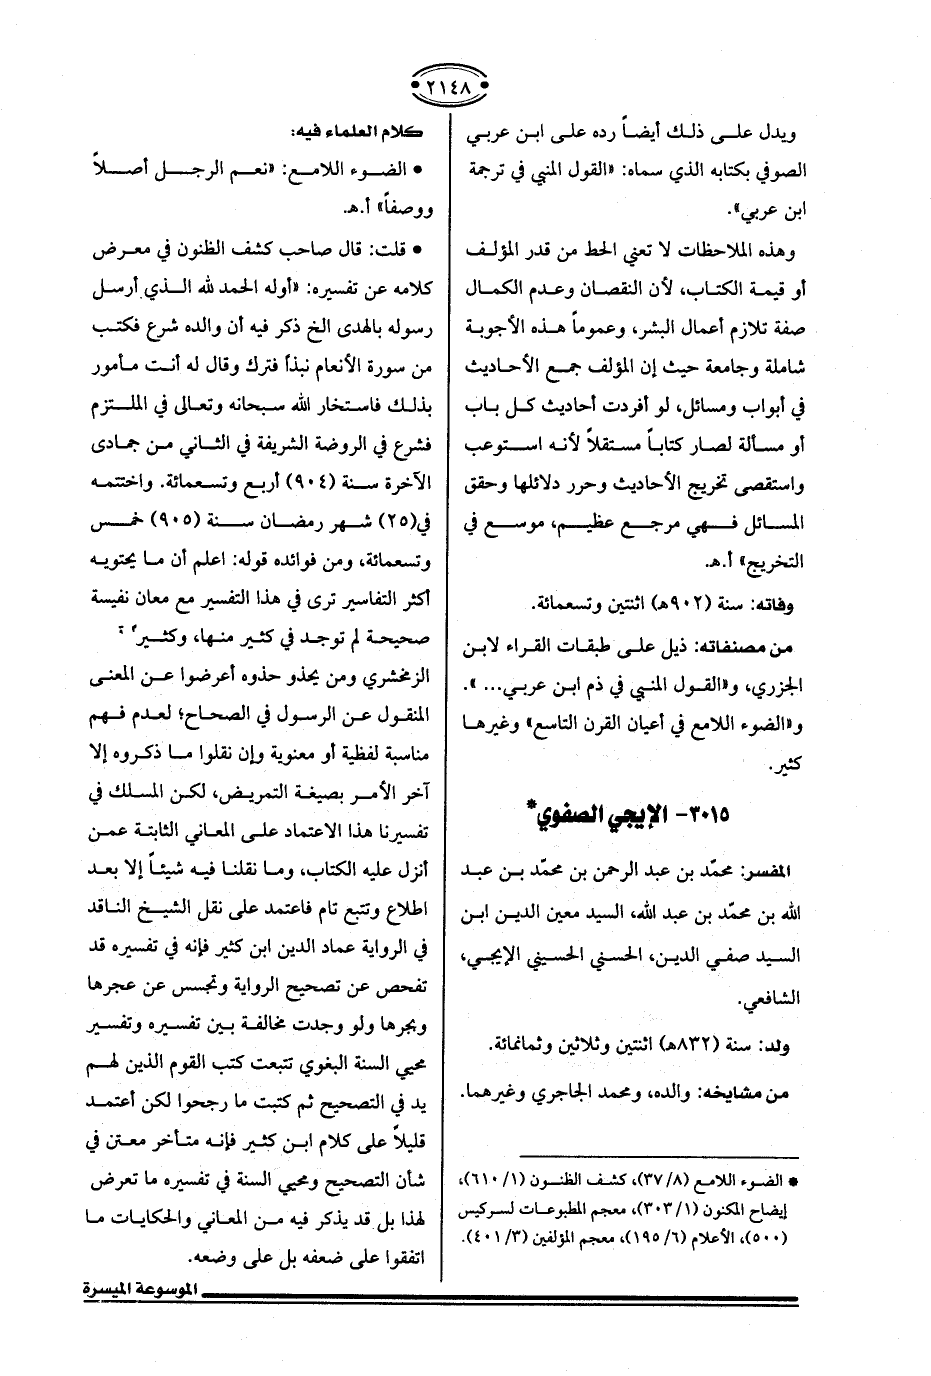 ٢١٤٨
ويدل على ذلك أيضاً رده على ابن عربي
الصوفي بكتابه الذي سماه: «القول المنبي في ترجمة
ابن عربي».
وهذه الملاحظات لا تعني الحط من قدر المؤلف
أو قيمة الكتاب، لأن النقصان وعدم الكمال
صفة تلازم أعمال البشر، وعموماً هذه الأجوبة
شاملة وجامعة حيث إن المؤلف جمع الأحاديث
في أبواب ومسائل، لو أفردت أحاديث كل باب
أو مسألة لصار كتاباً مستقلاً لأنه استوعب
واستقصى تخريج الأحاديث وحرر دلائلها وحقق
المسائل فهي مرجع عظيم، موسع في
التخريج» أ.هـ.
وفاته: سنة (٩٠٢هـ) اثنتين وتسعمائة.
من مصنفاته: ذيل على طبقات القراء لابن
الجزري، و«القول المنبي في ذم ابن عربي... ».
و«الضوء اللامع في أعيان القرن التاسع» وغيرها
كثير.
٣٠١٥- الإيجي الصفوي*
المفسر: محمّد بن عبد الرحمن بن محمّد بن عبد
الله بن محمّد بن عبد الله، السيد معين الدين ابن
السيد صفي الدين، الحسني الحسيني الإيجي،
الشافعي.
ولد: سنة (٨٣٢هـ) اثنتين وثلاثين وثمانمائة.
من مشايخه: والده، ومحمد الجاجري وغيرهما.
* الضوء اللامع (٣٧/٨)، كشف الظنون (٦١٠/١)،
إيضاح المكنون (٣٠٣/١)، معجم المطبوعات لسركيس
(٥٠٠)، الأعلام (١٩٥/٦)، معجم المؤلفين (٤٠١/٣).
كلام العلماء فيه:
• الضوء اللامع: «نعم الرجل أصلاً
ووصفاً» أ.هـ.
• قلت: قال صاحب كشف الظنون في معرض
كلامه عن تفسيره: «أوله الحمد لله الذي أرسل
رسوله بالهدى الخ ذكر فيه أن والده شرع فكتب
من سورة الأنعام نبذاً فترك وقال له أنت مأمور
بذلك فاستخار الله سبحانه وتعالى في الملتزم
فشرع في الروضة الشريفة في الثاني من جمادى
الآخرة سنة (٩٠٤) أربع وتسعمائة. واختتمه
في(٢٥) شهر رمضان سنة (٩٠٥) خمس
وتسعمائة، ومن فوائده قوله: اعلم أن ما يحتويه
أكثر التفاسير ترى في هذا التفسير مع معان نفيسة
صحيحة لم توجد في كثير منها، وكثير
الزمخشري ومن يحذو حذوه أعرضوا عن المعنى
المنقول عن الرسول في الصحاح؛ لعدم فهم
مناسبة لفظية أو معنوية وإن نقلوا ما ذكروه إلا
آخر الأمر بصيغة التمريض، لكن المسلك في
تفسيرنا هذا الاعتماد على المعاني الثابتة عمن
أنزل عليه الكتاب، وما نقلنا فيه شيئاً إلا بعد
اطلاع وتتبع تام فاعتمد على نقل الشيخ الناقد
في الرواية عماد الدين ابن كثير فإنه في تفسيره قد
تفحص عن تصحيح الرواية وتجسس عن عجرها
وبجرها ولو وجدت مخالفة بين تفسيره وتفسير
محيي السنة البغوي تتبعت كتب القوم الذين لهم
يد في التصحيح ثم كتبت ما رجحوا لكن أعتمد
قليلاً على كلام ابن كثير فإنه متأخر معتن في
شأن التصحيح ومحيي السنة في تفسيره ما تعرض
لهذا بل قد يذكر فيه من المعاني والحكايات ما
اتفقوا على ضعفه بل على وضعه.
الموسوعة الميسرة